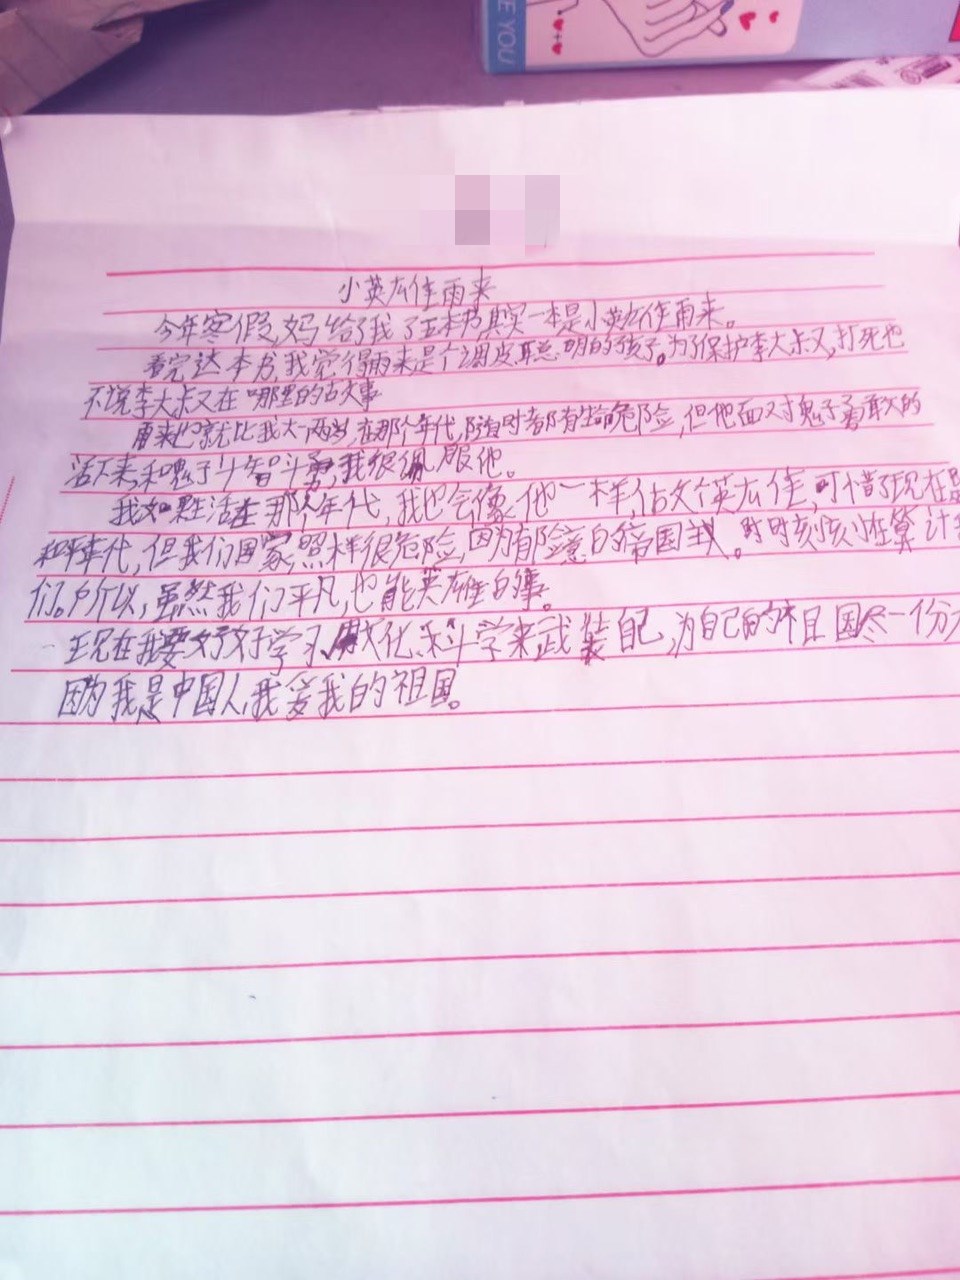 E YOU
小英雄雨来
今年寒假,妈给了我了五本书其实一本是小英雄雨来。
看完这本书,我觉得雨来是个调皮聪明的孩子。为了保护李大叔,打死也
不说李大叔在哪里的故事
雨来也就比我大一两岁,在那个年代,随时都有生命危险,但他面对鬼子勇敢的
活下来,和鬼子斗智斗勇,我很佩服他。
我如果生活在那个年代,我也会像他一样,做英雄,可惜了现在是
和平年代,但我们国家照样很危险,因为有险意的帝国主义。时时刻刻在算计
们。所以,虽然我们平凡,也能英雄的事。
现在我要好好学习,文化、科学来武装自己,为自己的祖国尽一份
因为我是中国人,我爱我的祖国。